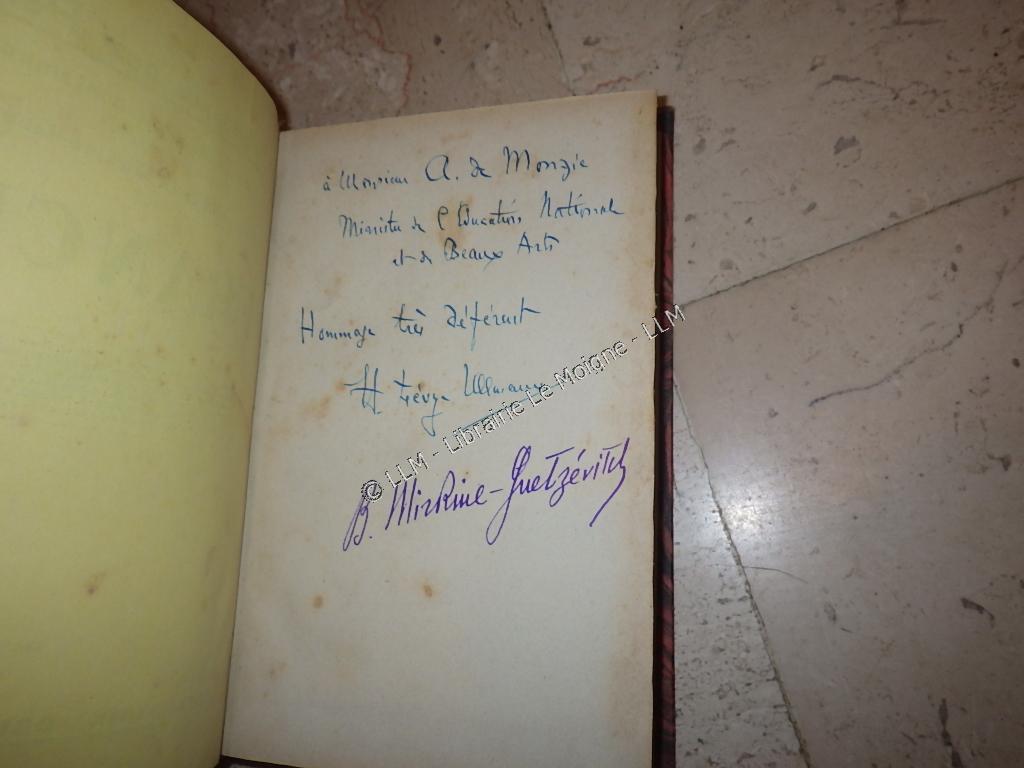 à Monsieur A. de Monzie
Ministre de l'Education Nationale
et des Beaux Arts
Hommage très déférent
H
B. Mirkine-Guetzévitch
© LLM - Librairie Le Moigne - LLM